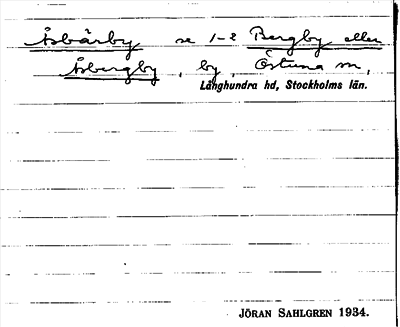 Åsbärby se 1-2 Bergby eller
Åsbergby, by, Östuna sn,
Långhundra hd, Stockholms län.
JÖRAN SAHLGREN 1934.